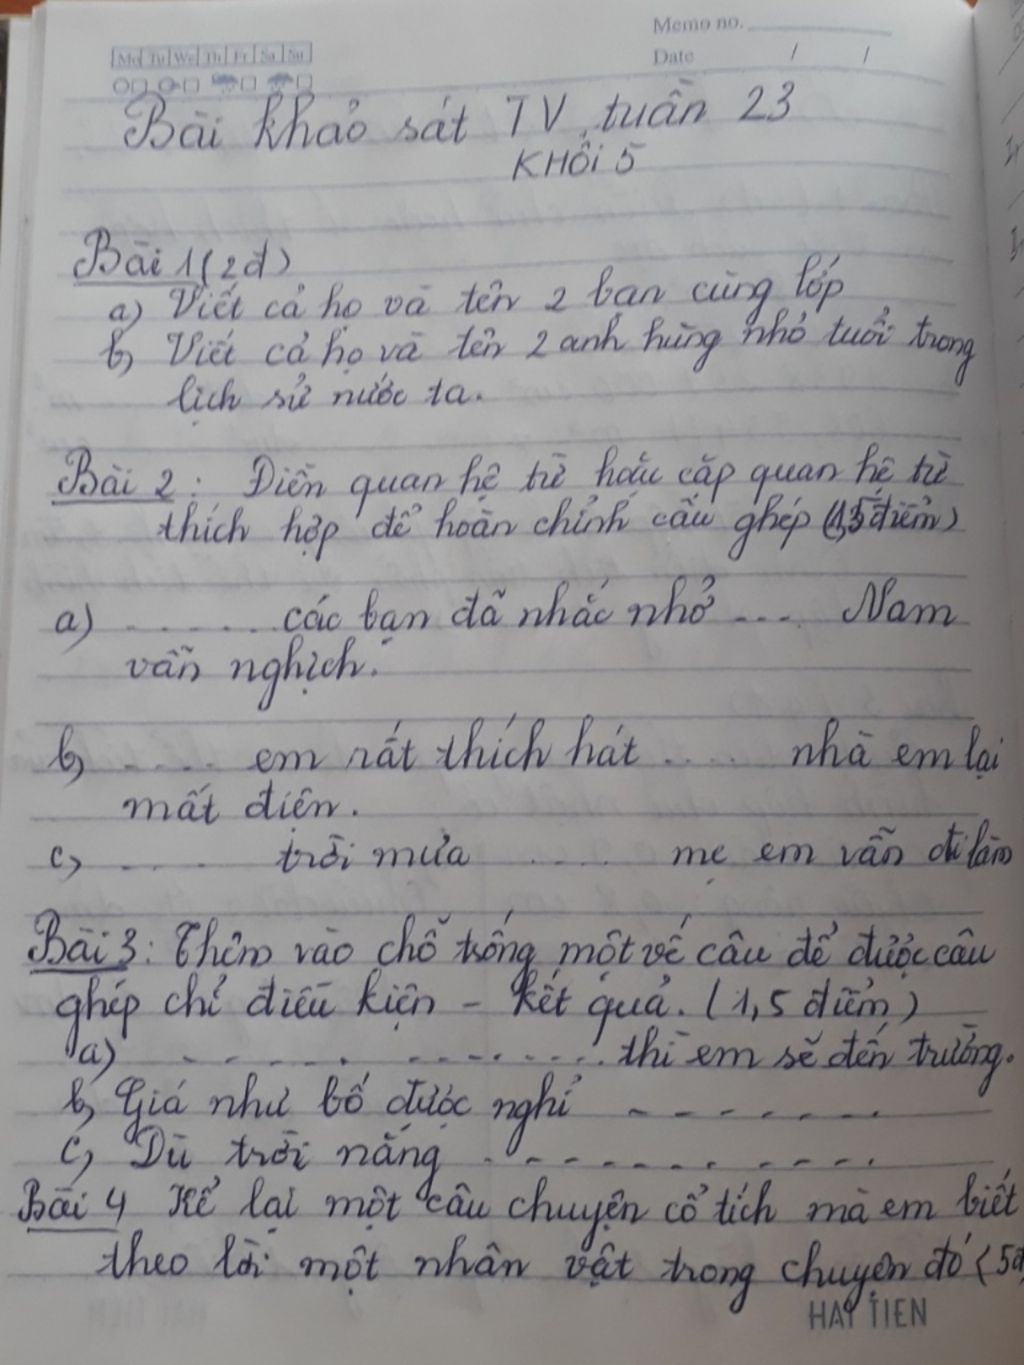 Memo no.
Date / /
Mo Tu We Th Fr Sa Su
Bài khảo sát TV tuần 23
KHỐI 5
Bài 1 (2đ)
a) Viết cả họ và tên 2 bạn cùng lớp
b) Viết cả họ và tên 2 anh hùng nhỏ tuổi trong
lịch sử nước ta.
Bài 2: Điền quan hệ từ hoặc cặp quan hệ từ
thích hợp để hoàn chỉnh câu ghép (1,5 điểm)
a) ....... các bạn đã nhắc nhở .... Nam
vẫn nghịch.
b) ..... em rất thích hát .... nhà em lại
mất điện.
c) .... trời mưa .... mẹ em vẫn đi làm
Bài 3: Thêm vào chỗ trống một vế câu để được câu
ghép chỉ điều kiện - kết quả. (1,5 điểm)
a) ............... thì em sẽ đến trường.
b) Giá như bố được nghỉ .......
c) Dù trời nắng ............
Bài 4 Kể lại một câu chuyện cổ tích mà em biết
theo lời một nhân vật trong chuyện đó (5đ
HẢI TIẾN